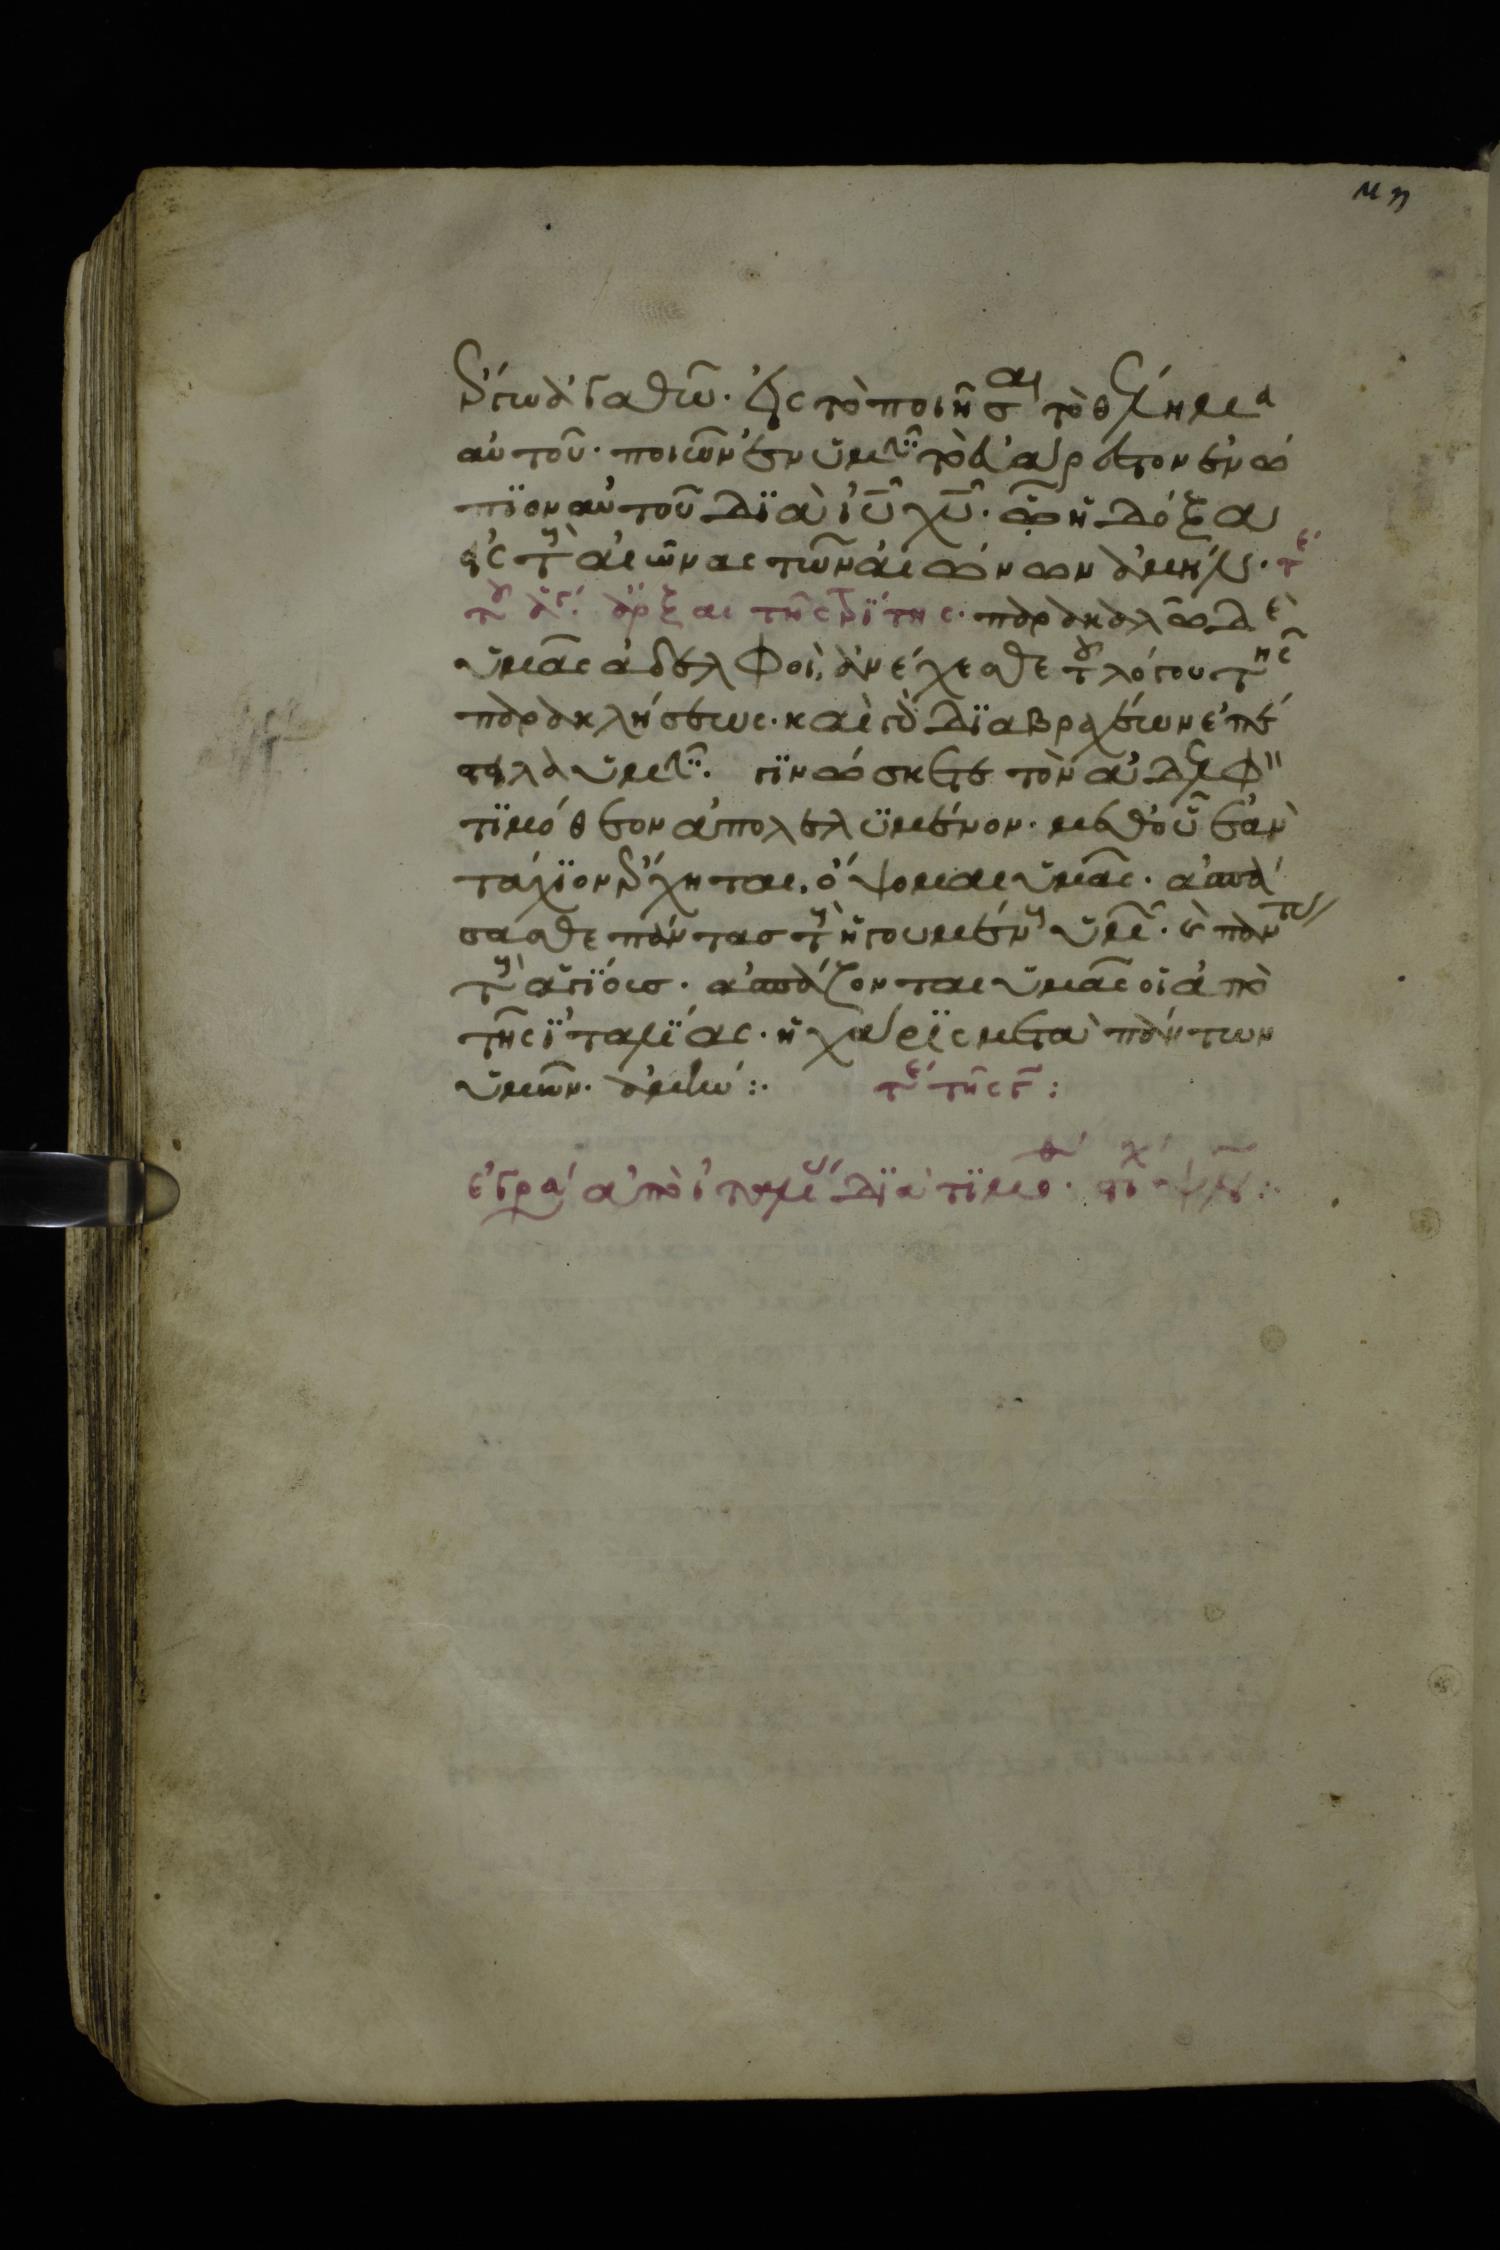 μη
ἔργω ἀγαθῶ· εἰς τὸ ποιῆσαι τὸ θέλημα
αὐτοῦ· ποιῶν ἐν ὑμῖν τὸ εὐάρεστον ἐνώ
πϊον αὐτοῦ δϊὰ ἰυ χυ· ὧ ἡ δόξα
εἰς τοὺς αἰῶνας τῶν αἰώνων ἀμήν·
ἄρξαι τῆς τρίτης· παρακαλῶ δὲ
ὑμᾶς ἀδελφοὶ, ἀνέχεσθε τοῦ λόγου τῆς
παρακλήσεως· καὶ γὰρ δϊα βραχέων ἐπέ
στειλα ὑμῖν· γϊνώσκετε τὸν ἀδελφὸν
τϊμόθεον ἀπολελϋμένον· μεθ' οὗ ἐὰν
τάχϊον ἔρχηται, ὄψομαι ὑμᾶς· ἀσπά
σασθε πάντας τοὺς ἡγουμένους ὑμῶν· καὶ πάντας
τοὺς ἁγϊόυσ· ἀσπάζονται ὑμᾶς οἱ ἀπὸ
τῆς ϊταλϊας· ἡ χάρϊς μετὰ πάντων
ὑμῶν· ἀμήν:· τέ τῆς Γ:
ἐγρά ἀπὸ ἰταλί δϊὰ τϊμοθ·